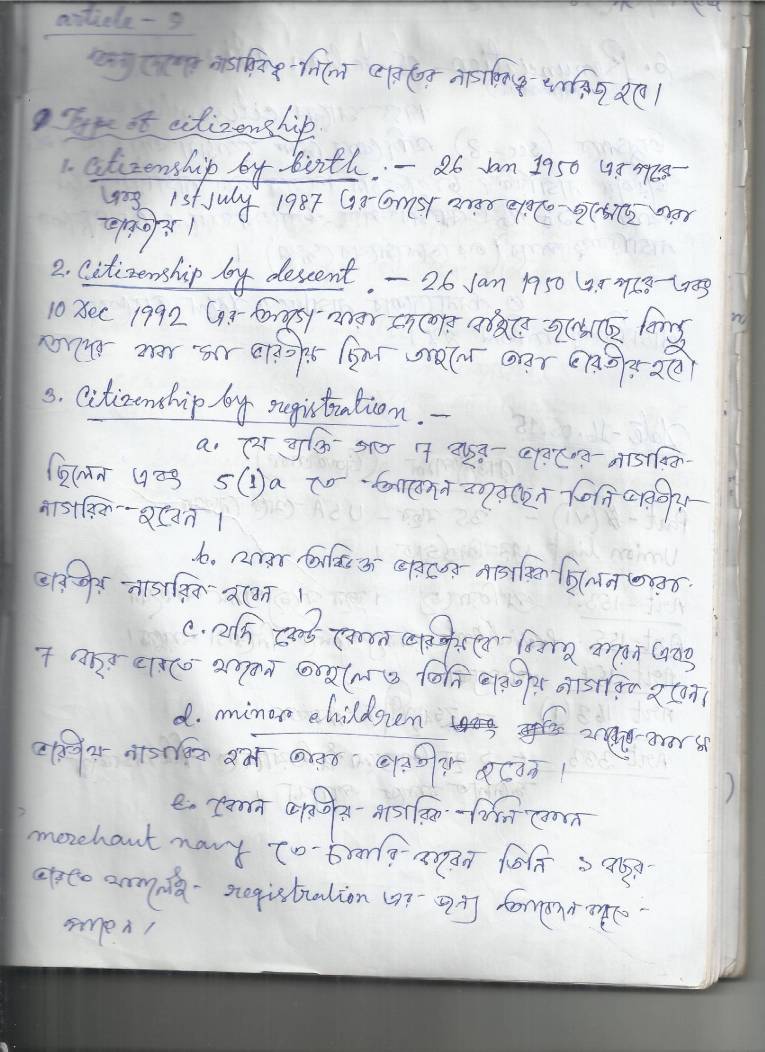 article - 9
অন্য দেশের নাগরিকত্ব নিলে ভারতের নাগরিকত্ব খারিজ হবে।
Type of citizenship.
1. Citizenship by birth. — 26 Jan 1950 এর পরে
এবং 1st July 1987 এর আগে যারা ভারতে জন্মেছে তারা
ভারতীয়।
2. Citizenship by descent. — 26 Jan 1950 এর পরে এবং
10 Dec 1992 এর আগে যারা দেশের বাইরে জন্মেছে কিন্তু
তাদের বাবা মা ভারতীয় ছিল তাহলে তারা ভারতীয় হবে।
3. Citizenship by registration. —
a. যে ব্যক্তি গত 7 বছর ভারতের নাগরিক
ছিলেন এবং 5(1)a তে আবেদন করেছেন তিনি ভারতীয়
নাগরিক হবেন।
b. যারা ভারতের নাগরিক ছিলেন তারা
ভারতীয় নাগরিক হবেন।
c. যদি কেউ কোন ভারতীয়কে বিবাহ করেন এবং
7 বছর ভারতে থাকেন তাহলেও তিনি ভারতীয় নাগরিক হবেন।
d. minor children যাদের বাবা মা
ভারতীয় নাগরিক হয় তারা ভারতীয় হবেন।
e. কোন ভারতীয় নাগরিক যিনি কোন
merchaut navy তে চাকরি করেন তিনি ১ বছর
ভারতে থাকলেই registration এর জন্য আবেদন করতে
পারেন।